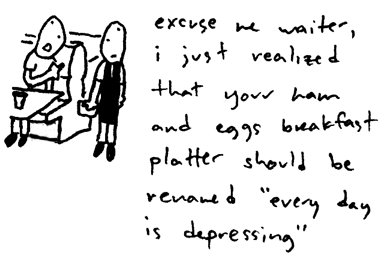 excuse me waiter,
i just realized
that your ham
and eggs breakfast
platter should be
renamed "every day
is depressing"